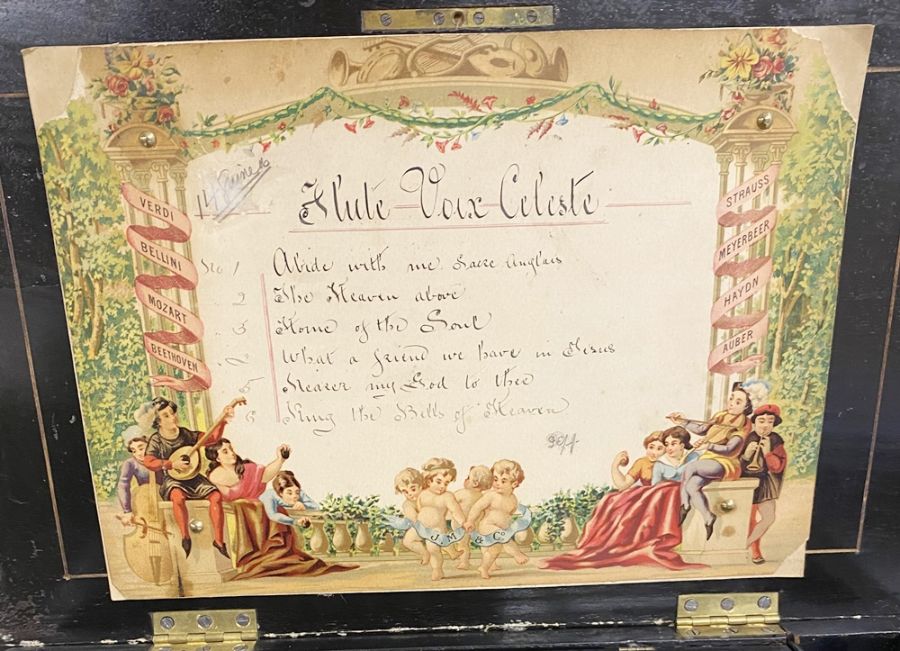 Flute Voix Celeste
VERDI
BELLINI
MOZART
BEETHOVEN
STRAUSS
MEYERBEER
HAYDN
AUBER
No 1 Abide with me Sacre Anglais
2 The Heaven above
3 Home of the Soul
What a friend we have in Jesus
5 Nearer my God to thee
6 Ring the Bells of Heaven
J.M. & Co